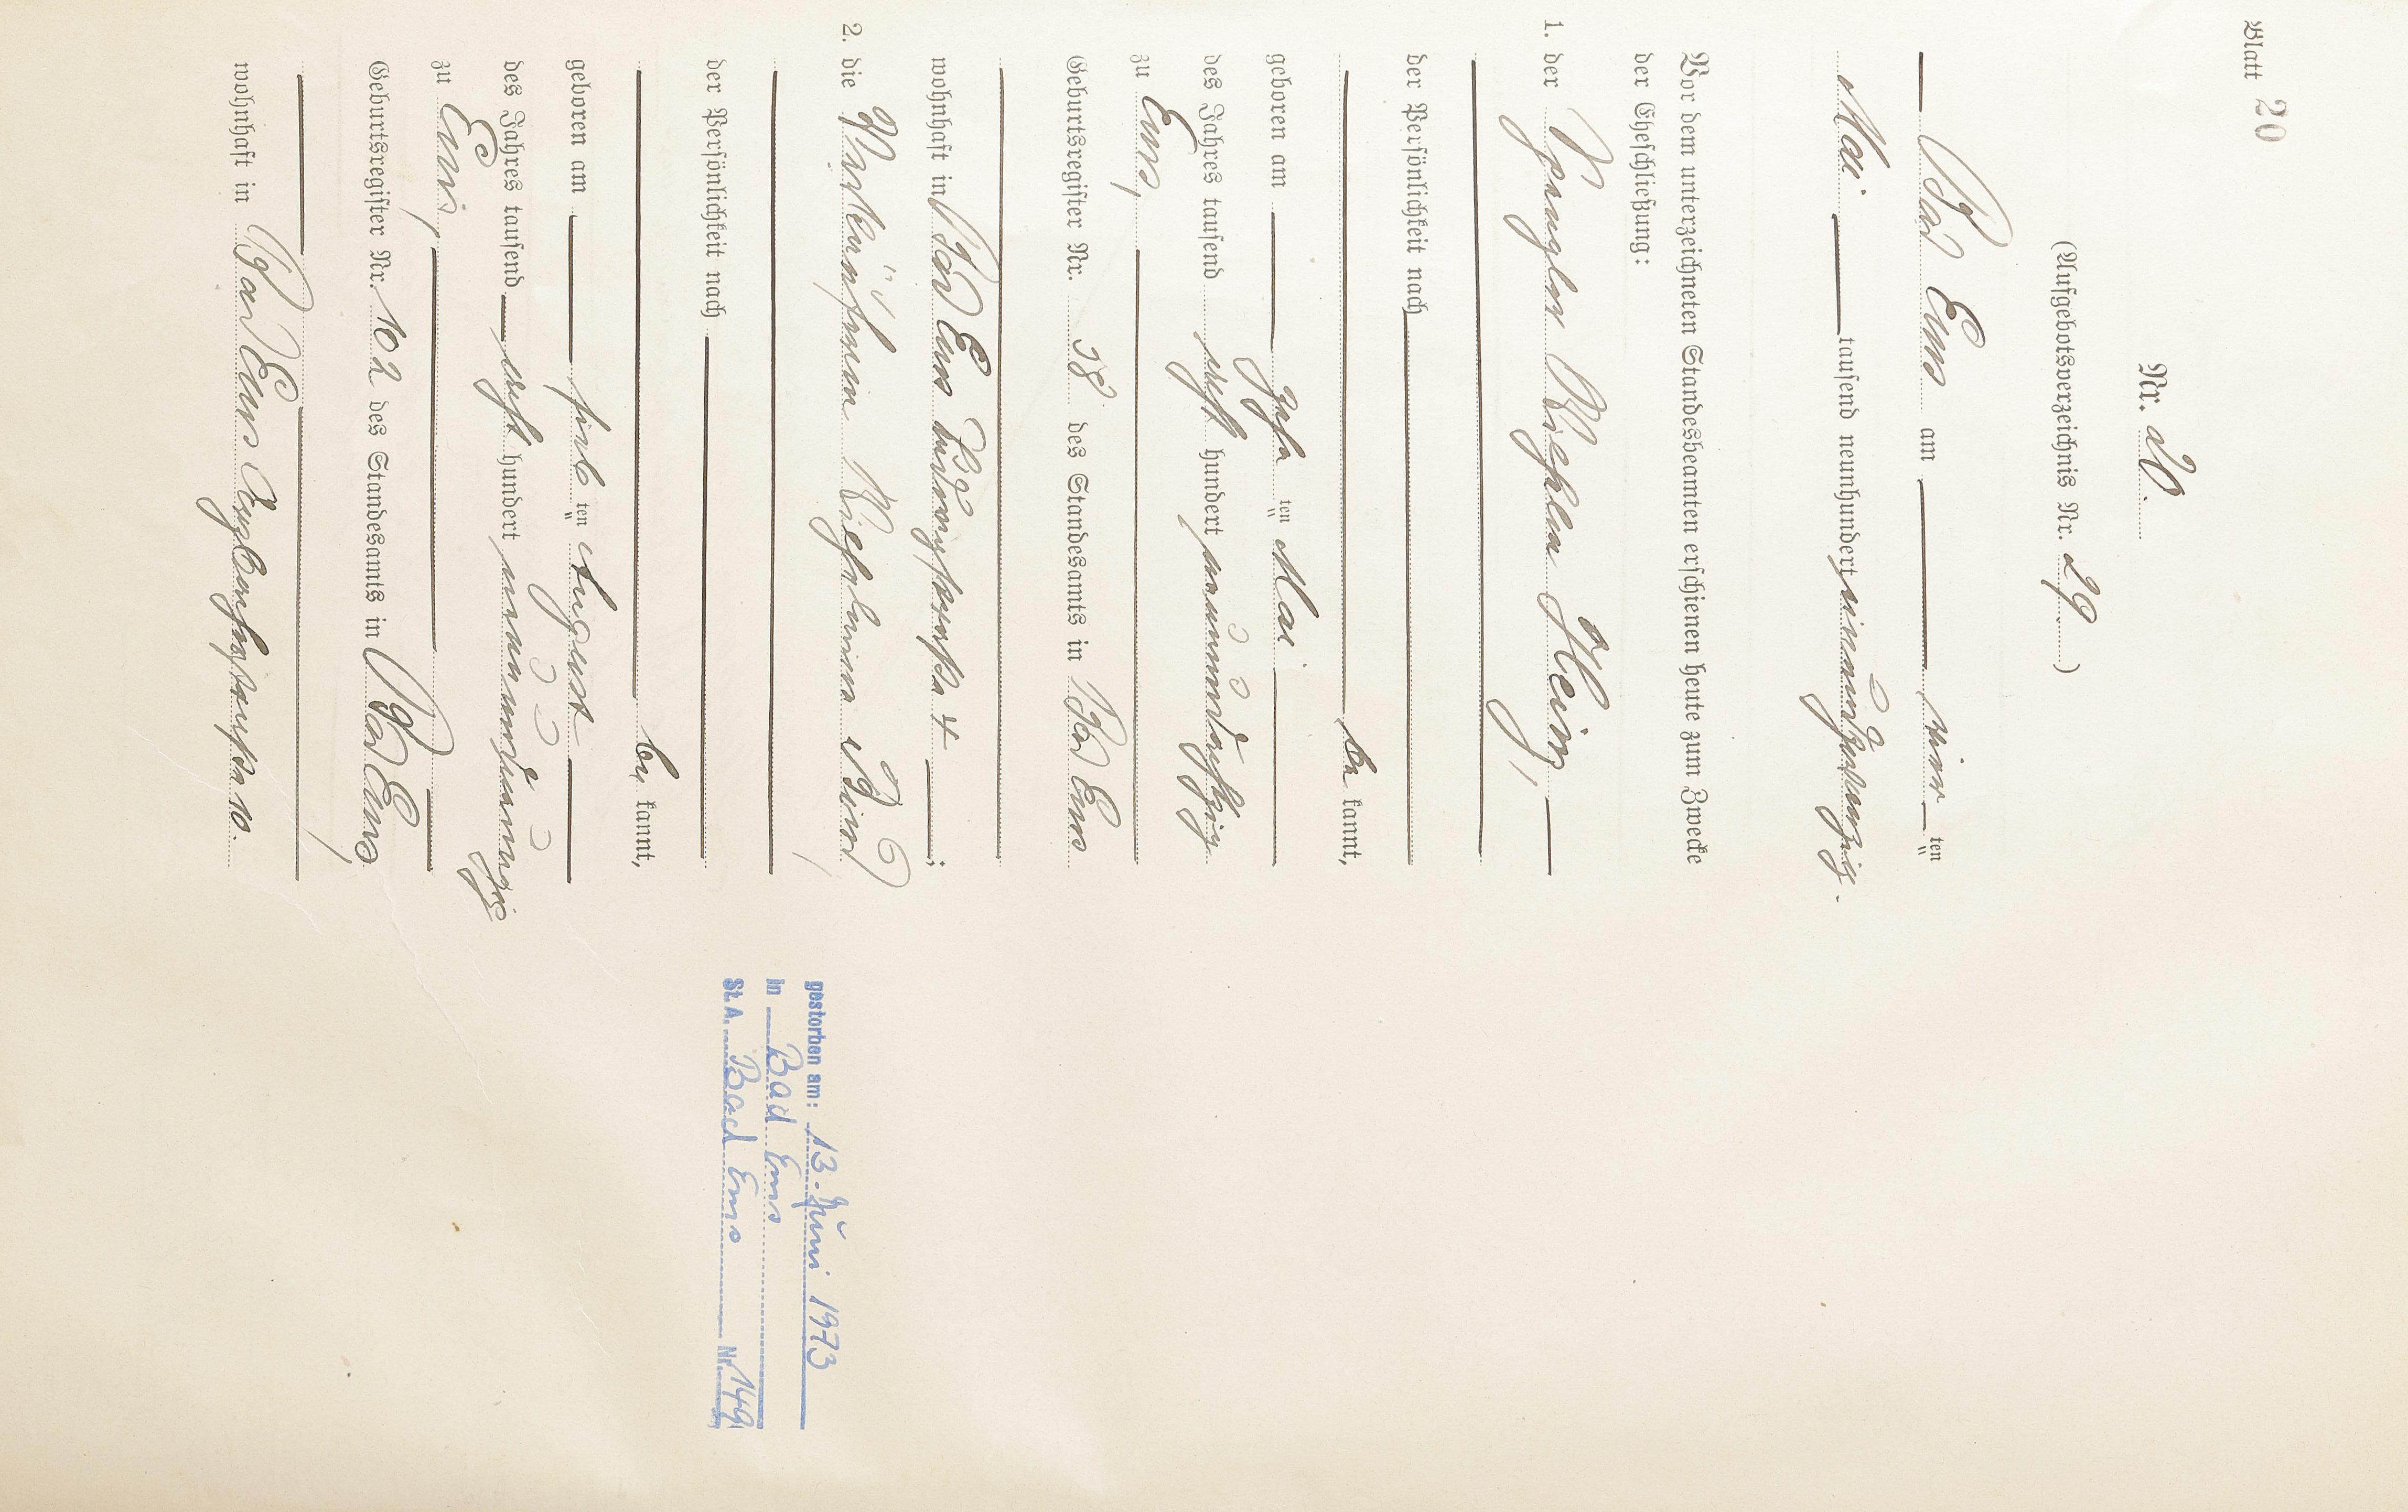 Blatt 20
Nr. 20.
(Aufgebotsverzeichnis Nr. 29.)
Bad Ems am vier ten
Mai tausend neunhundert einundzwanzig.
Vor dem unterzeichneten Standesbeamten erschienen heute zum Zwecke
der Eheschließung:
1. der Wilhelm Heinz,
der Persönlichkeit nach
be kannt,
geboren am zehn ten Mai
des Jahres tausend acht hundert neunundachtzig
zu Ems,
Geburtsregister Nr. 58 des Standesamts in Bad Ems
wohnhaft in Bad Ems 4;
2. die Verkäuferin Wilhelmine
der Persönlichkeit nach
be kannt,
geboren am fünf ten August
des Jahres tausend acht hundert neunundneunzig
zu Ems,
Geburtsregister Nr. 102 des Standesamts in Bad Ems,
wohnhaft in Bad Ems 10.
gestorben am: 13. Juni 1973
in Bad Ems
St. A. Bad Ems Nr. 149